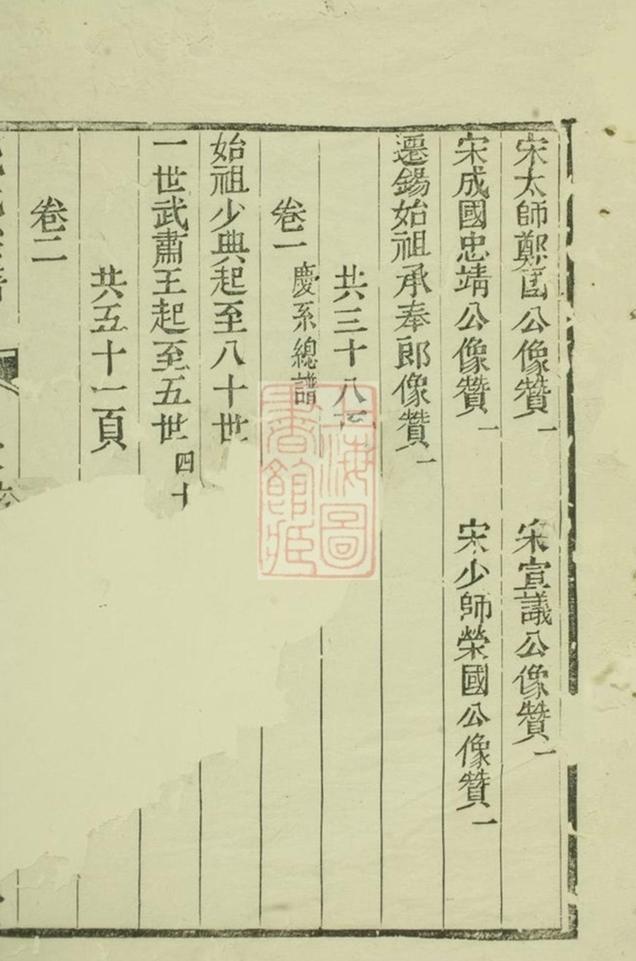 宋太師鄭国公像贊一 宋宣議公像贊一
宋成國忠靖公像贊一 宋少師榮國公像贊一
遷錫始祖承奉郎像贊一
共三十八
卷一 慶系總譜
始祖少典起至八十世
一世武肅王起至五世 四十
共五十一頁
卷二
上海圖書館藏